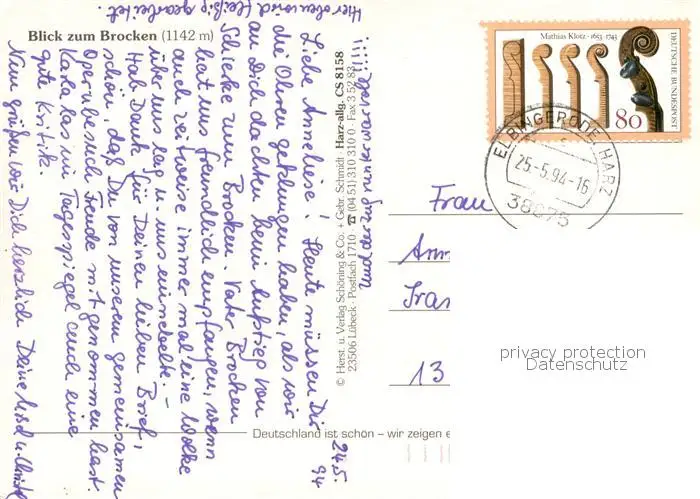 Blick zum Brocken (1142 m)
Hier oben wird fleißig gearbeitet.
24.5.
94
Liebe Anneliese! Heute müssen Dir
die Ohren geklungen haben, als wir
an Dich dachten beim Aufstieg von
Schierke zum Brocken. Vater Brocken
hat uns freundlich empfangen, wenn
auch zeitweise immer mal eine Wolke
über uns lag u. uns einnebelte. –
Hab Dank für Deinen lieben Brief,
schön, daß Du von unserem gemeinsamen
Opernbesuch Freude mitgenommen hast.
Kaka las im Tagesspiegel auch eine
gute Kritik.
Nun grüßen wir Dich herzlich Deine
© Herst. u. Verlag Schöning & Co. + Gebr. Schmidt · Harz-allg. CS 8158
23506 Lübeck · Postfach 1710 · ☎ (04 51) 310 310 0 · Fax 3 52 83
Deutschland ist schön – wir zeigen e
Mathias Klotz · 1653 – 1743
DEUTSCHE BUNDESPOST
80
ELBINGERODE, HARZ
25.-5.94-16
38875
Frau
13
privacy protection
Datenschutz